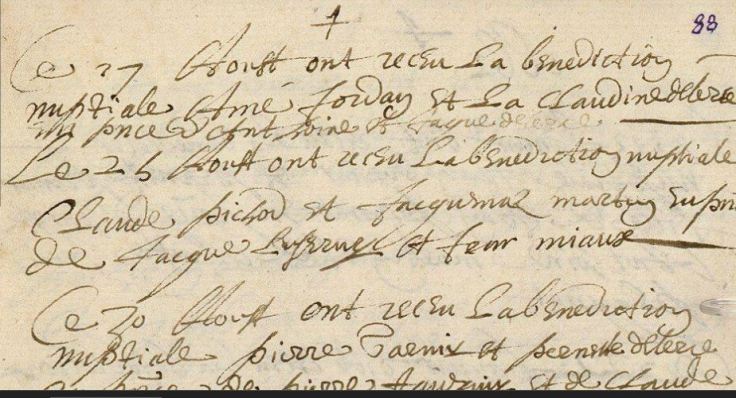 88
Ce 27 Aoust ont receu La benediction
nuptiale Amé Jorday et La Claudine delerce
en pnce d'Ant et Jaque delerce
Le 25 Aoust ont receu La benediction nuptiale
Claude pichod et Jaquemaz martin en pn
de Jacque et miaux
Ce 30 Aoust ont receu La benediction
nuptiale pierre et pernette delerce
pierre et de Claude